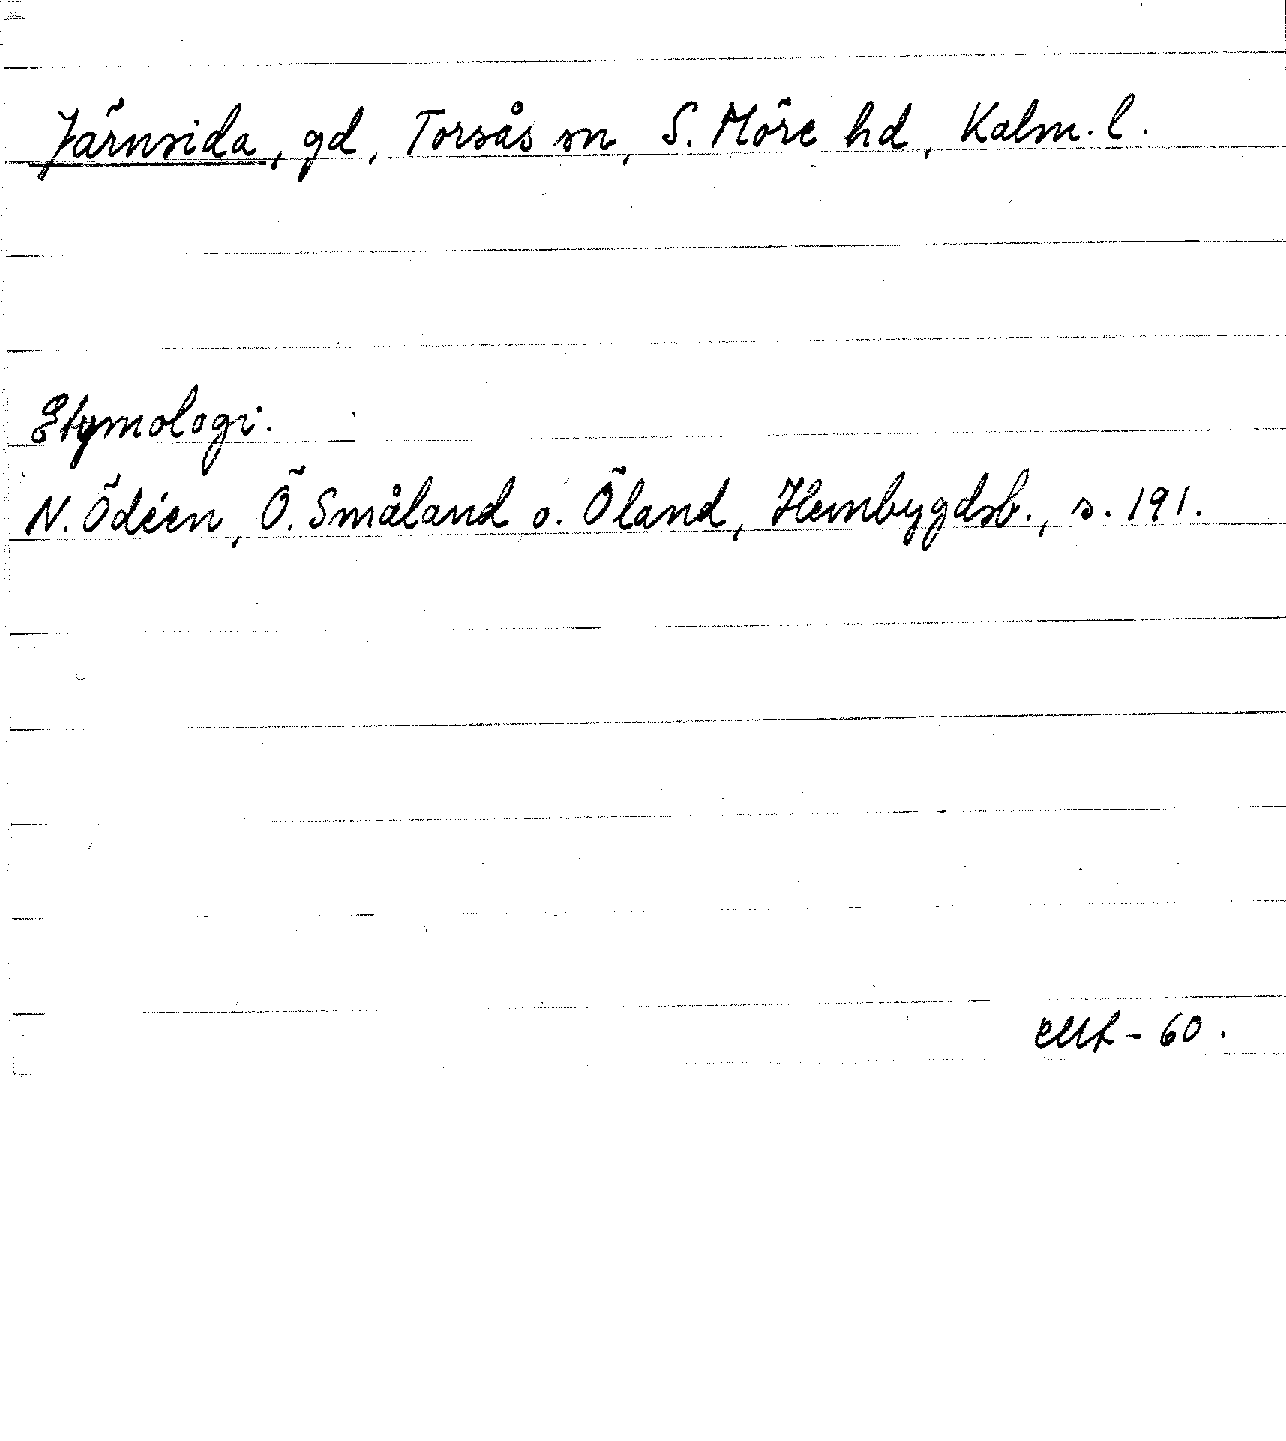 Järnsida, gd, Torsås sn, S. Möre hd, Kalm. l.
Etymologi.
N. Ödéen, Ö. Småland o. Öland, Hembygdsb., s. 191.
- 60.